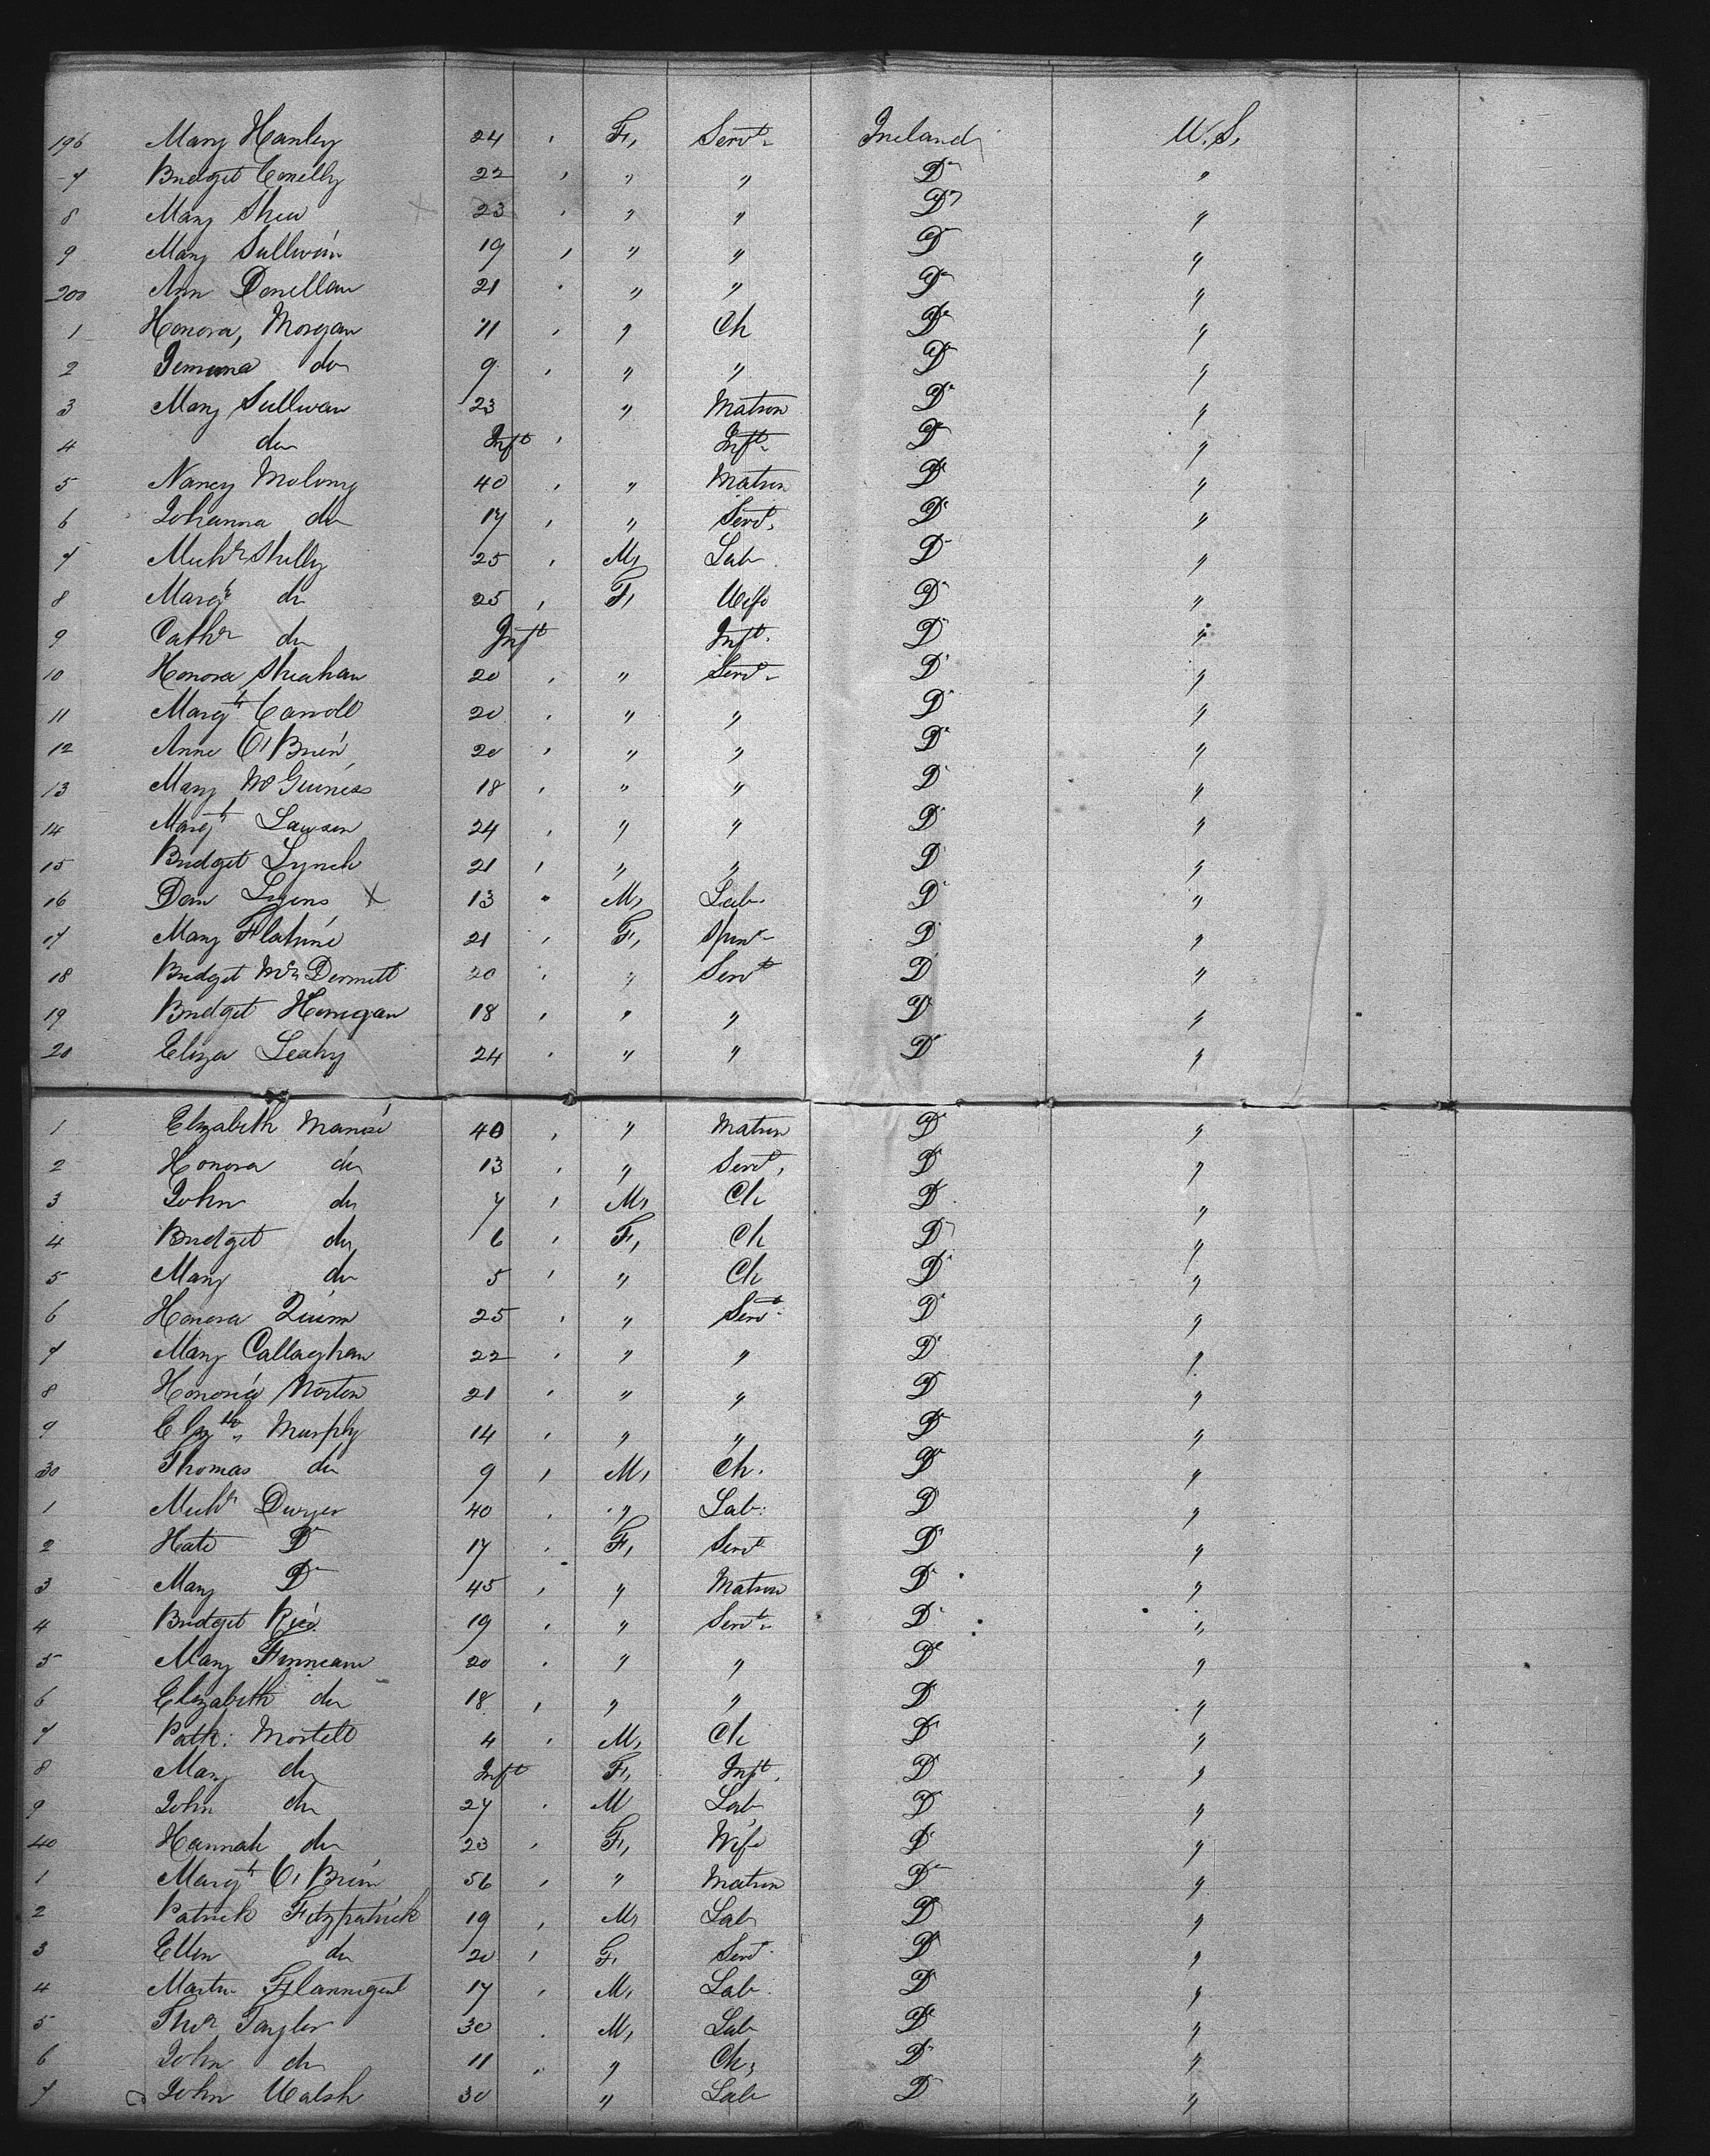 196 Mary Hanley 24 , F, Servt Ireland U.S.
7 Bridget Conelly 22 , " " Do "
8 Mary Shea 23 , " " Do "
9 Mary Sullivan 19 , " " Do "
200 Ann Donellan 21 , " " Do "
1 Honora, Morgan 11 , " Ch Do "
2 Jemima do 9 , " " Do "
3 Mary Sullivan 23 " Matron Do "
4 do Inft , Inft Do "
5 Nancy Molony 40 , " Matron Do "
6 Johanna do 17 , " Servt, Do "
7 Michl Shelly 25 , M, Lab Do "
8 Margt do 25 , F, Wife Do "
9 Cathr do Inft Inft. Do "
10 Honora Sheahan 20 , " Servt Do "
11 Margt Carroll 20 , " " Do "
12 Anne O'Brien 20 , " " Do "
13 Mary McGuiness 18 , " " Do "
14 Margt Lawson 24 , " " Do "
15 Bridget Lynch 21 , " " Do "
16 Dan Lyons X 13 " M, Lab. Do "
17 Mary 21 , F, Spinr Do "
18 Bridget McDermott 20 , " Servt Do "
19 Bridget Honigan 18 , " " Do "
20 Eliza Leahy 24 , " " Do "
1 Elizabeth 40 , " Matron Do "
2 Honora do 13 , " Servt, Do "
3 John do 7 , M, Ch Do "
4 Bridget do 6 , F, Ch Do "
5 Mary do 5 , " Ch Do "
6 Honora Quinn 25 , " Servt Do "
7 Mary Callaghan 22 , " " Do "
8 Honoria Norton 21 , " " Do "
9 Elizth Murphy 14 , " " Do "
30 Thomas do 9 , M, Ch. Do "
1 Michl Dwyer 40 , " Lab: Do "
2 Kate Do 17 , F, Servt Do "
3 Mary Do 45 , " Matron Do "
4 Bridget Rice 19 , " Servt Do "
5 Mary Finnean 20 , " " Do "
6 Elizabeth do 18 , " " Do "
7 Patk: Mortell 4 , M, Ch Do "
8 Mary do Inft F, Inft. Do "
9 John do 27 , M Lab Do "
40 Hannah do 23 , F, Wife Do "
1 Margt O'Brien 56 , " Matron Do "
2 Patrick Fitzpatrick 19 , M, Lab Do "
3 Ellen do 20 , F, Servt Do "
4 Martin 17 , M, Lab Do "
5 Thos Taylor 30 , M, Lab Do "
6 John do 11 , " Ch, Do "
7 John Walsh 30 " Lab Do "